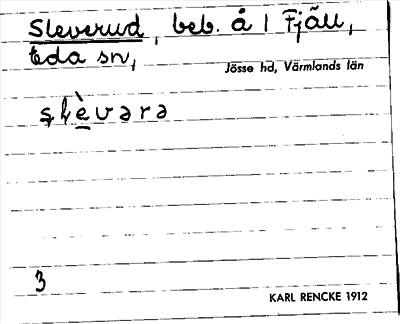 Sleverud, beb. å 1 Fjäll,
Eda sn,
Jösse hd, Värmlands län
3
KARL RENCKE 1912